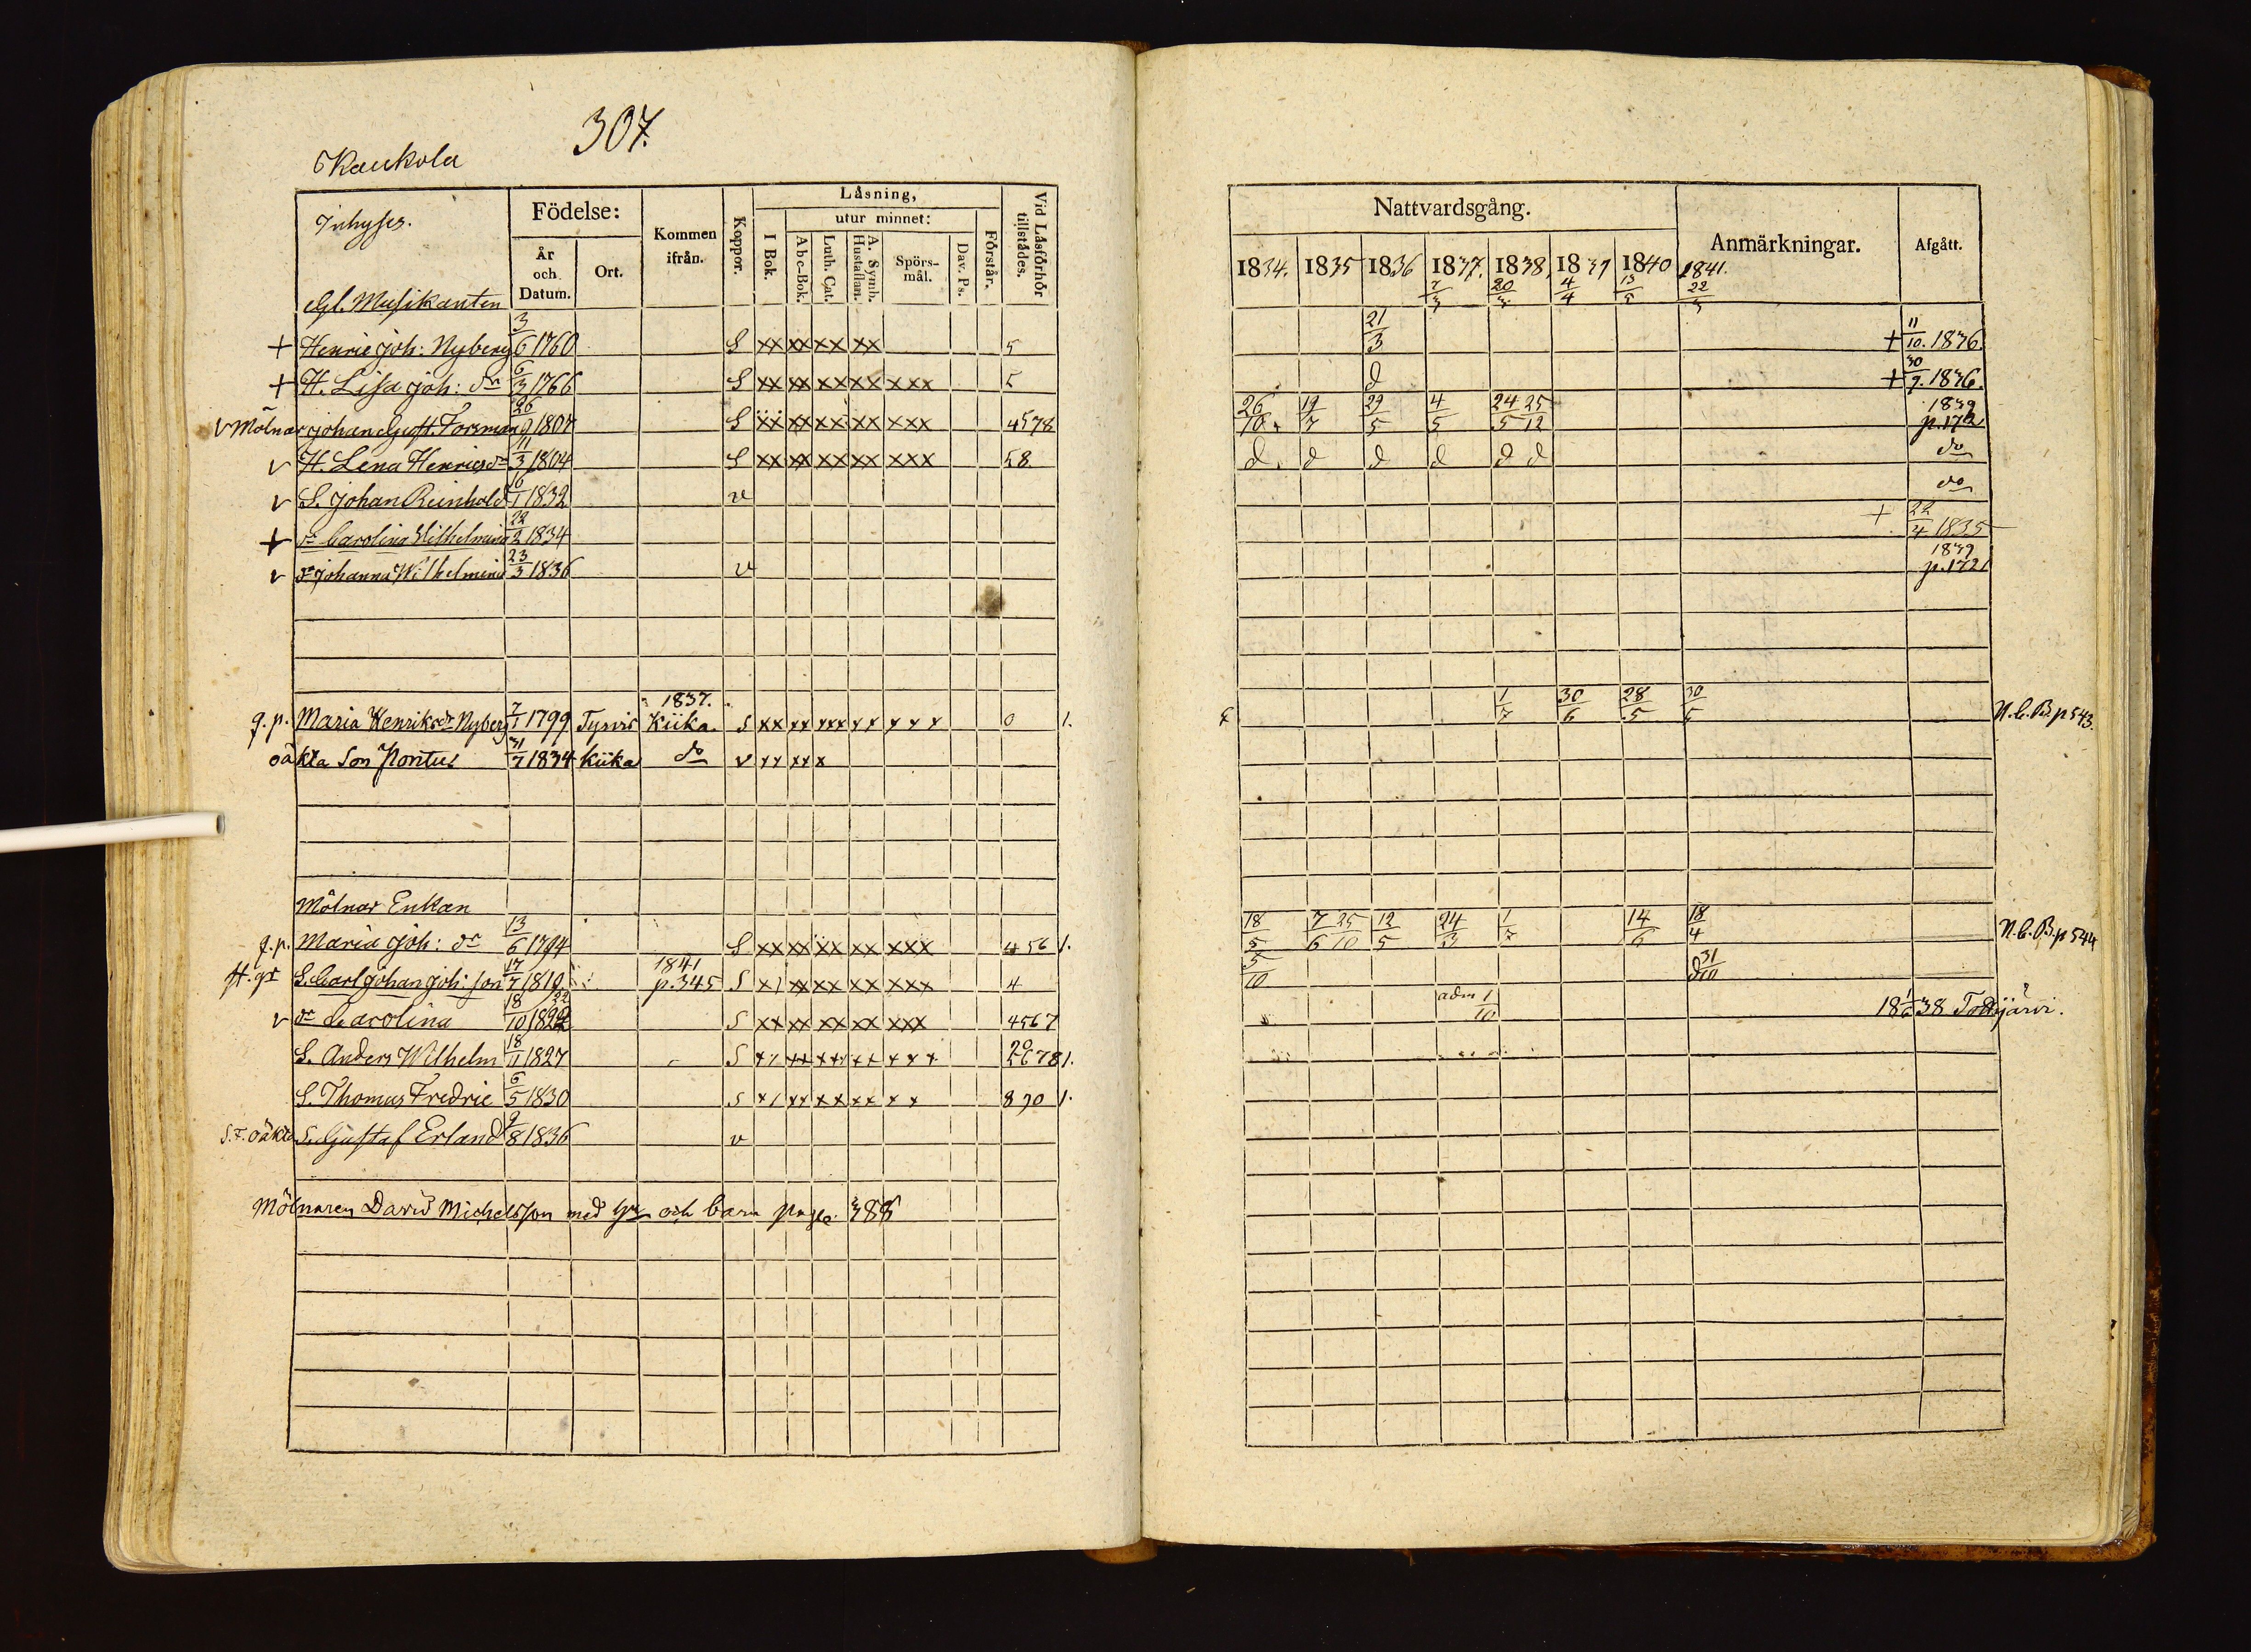 307.
Kaukola
Inhyses.
Födelse:
År och Datum.
Ort.
Kommen ifrån.
Koppor.
Läsning,
I Bok.
utur minnet:
Abc-Bok.
Luth. Cat.
A. Symb. Hustaflan.
Spörsmål.
Dav. Ps.
Förstår.
Vid Läsförhör tillstädes.
Nattvardsgång.
1834. 1835 1836 1837. 1838. 1839 1840 1841.
7/3 20/3 4/4 13/5 22/3
Anmärkningar.
Afgått.
Gl. Musikanten
+ Henric Joh: Nyberg 3/6 1760 S xx xx xx xx 5 21/3 + 11/10. 1836.
+ H. Lisa Joh: dr 6/3 1766 S xx xx xx xx xxx 5 d + 30/9. 1836.
v Mölnar Johan Gust. Forsman 26/9 1807 S xx xx xx xx xxx 4578 26/10. 19/7 29/5 4/5 24/5 25/12 1839 p.172
v H. Lena Henricsdr 11/3 1804 S xx xx xx xx xxx 58 d. d d d d d do
v S. Johan Reinhold 6/1 1832 v do
+ dr Carolina Wilhelmina 22/2 1834 + 22/4 1835
v dr Johanna Wilhelmina 23/3 1836 v 1839 p.172
g.p. Maria Henriksdr Nyberg 7/1 1799 Tyrvis 1837. Kiika. S xx xx xxx xx xxx 0 1. 1/7 30/6 28/5 30/5 N.C.B. p 543.
oäkta Son Pontus 31/7 1834 Kiika do v xx xx x
Mölnar Enkan
g.p. Maria Joh: dr 13/6 1794 S xx xx xx xx xxx 456 1. 18/5 7/6 25/10 12/5 24/3 1/7 14/6 18/4 N.C.B. p 544
S. Carl Johan Joh: son 17/7 1819 1841 p.345 S x1 xx xx xx xxx 4 5/10 d 31/10
v dr Carolina 18/10 1822 S xx xx xx xx xxx 4567 adm 1/10 18 1/6 38 Tottijärvi.
S. Anders Wilhelm 18/11 1827 S xx xx xx xx xxx 678 1.
S. Thomas Fredric 6/5 1830 S x1 xx xx xx xx 890 1.
S. F. oäkta S. Gustaf Erland 9/8 1836 v
Mölnaren David Michelsson med hu och barn pag. 388